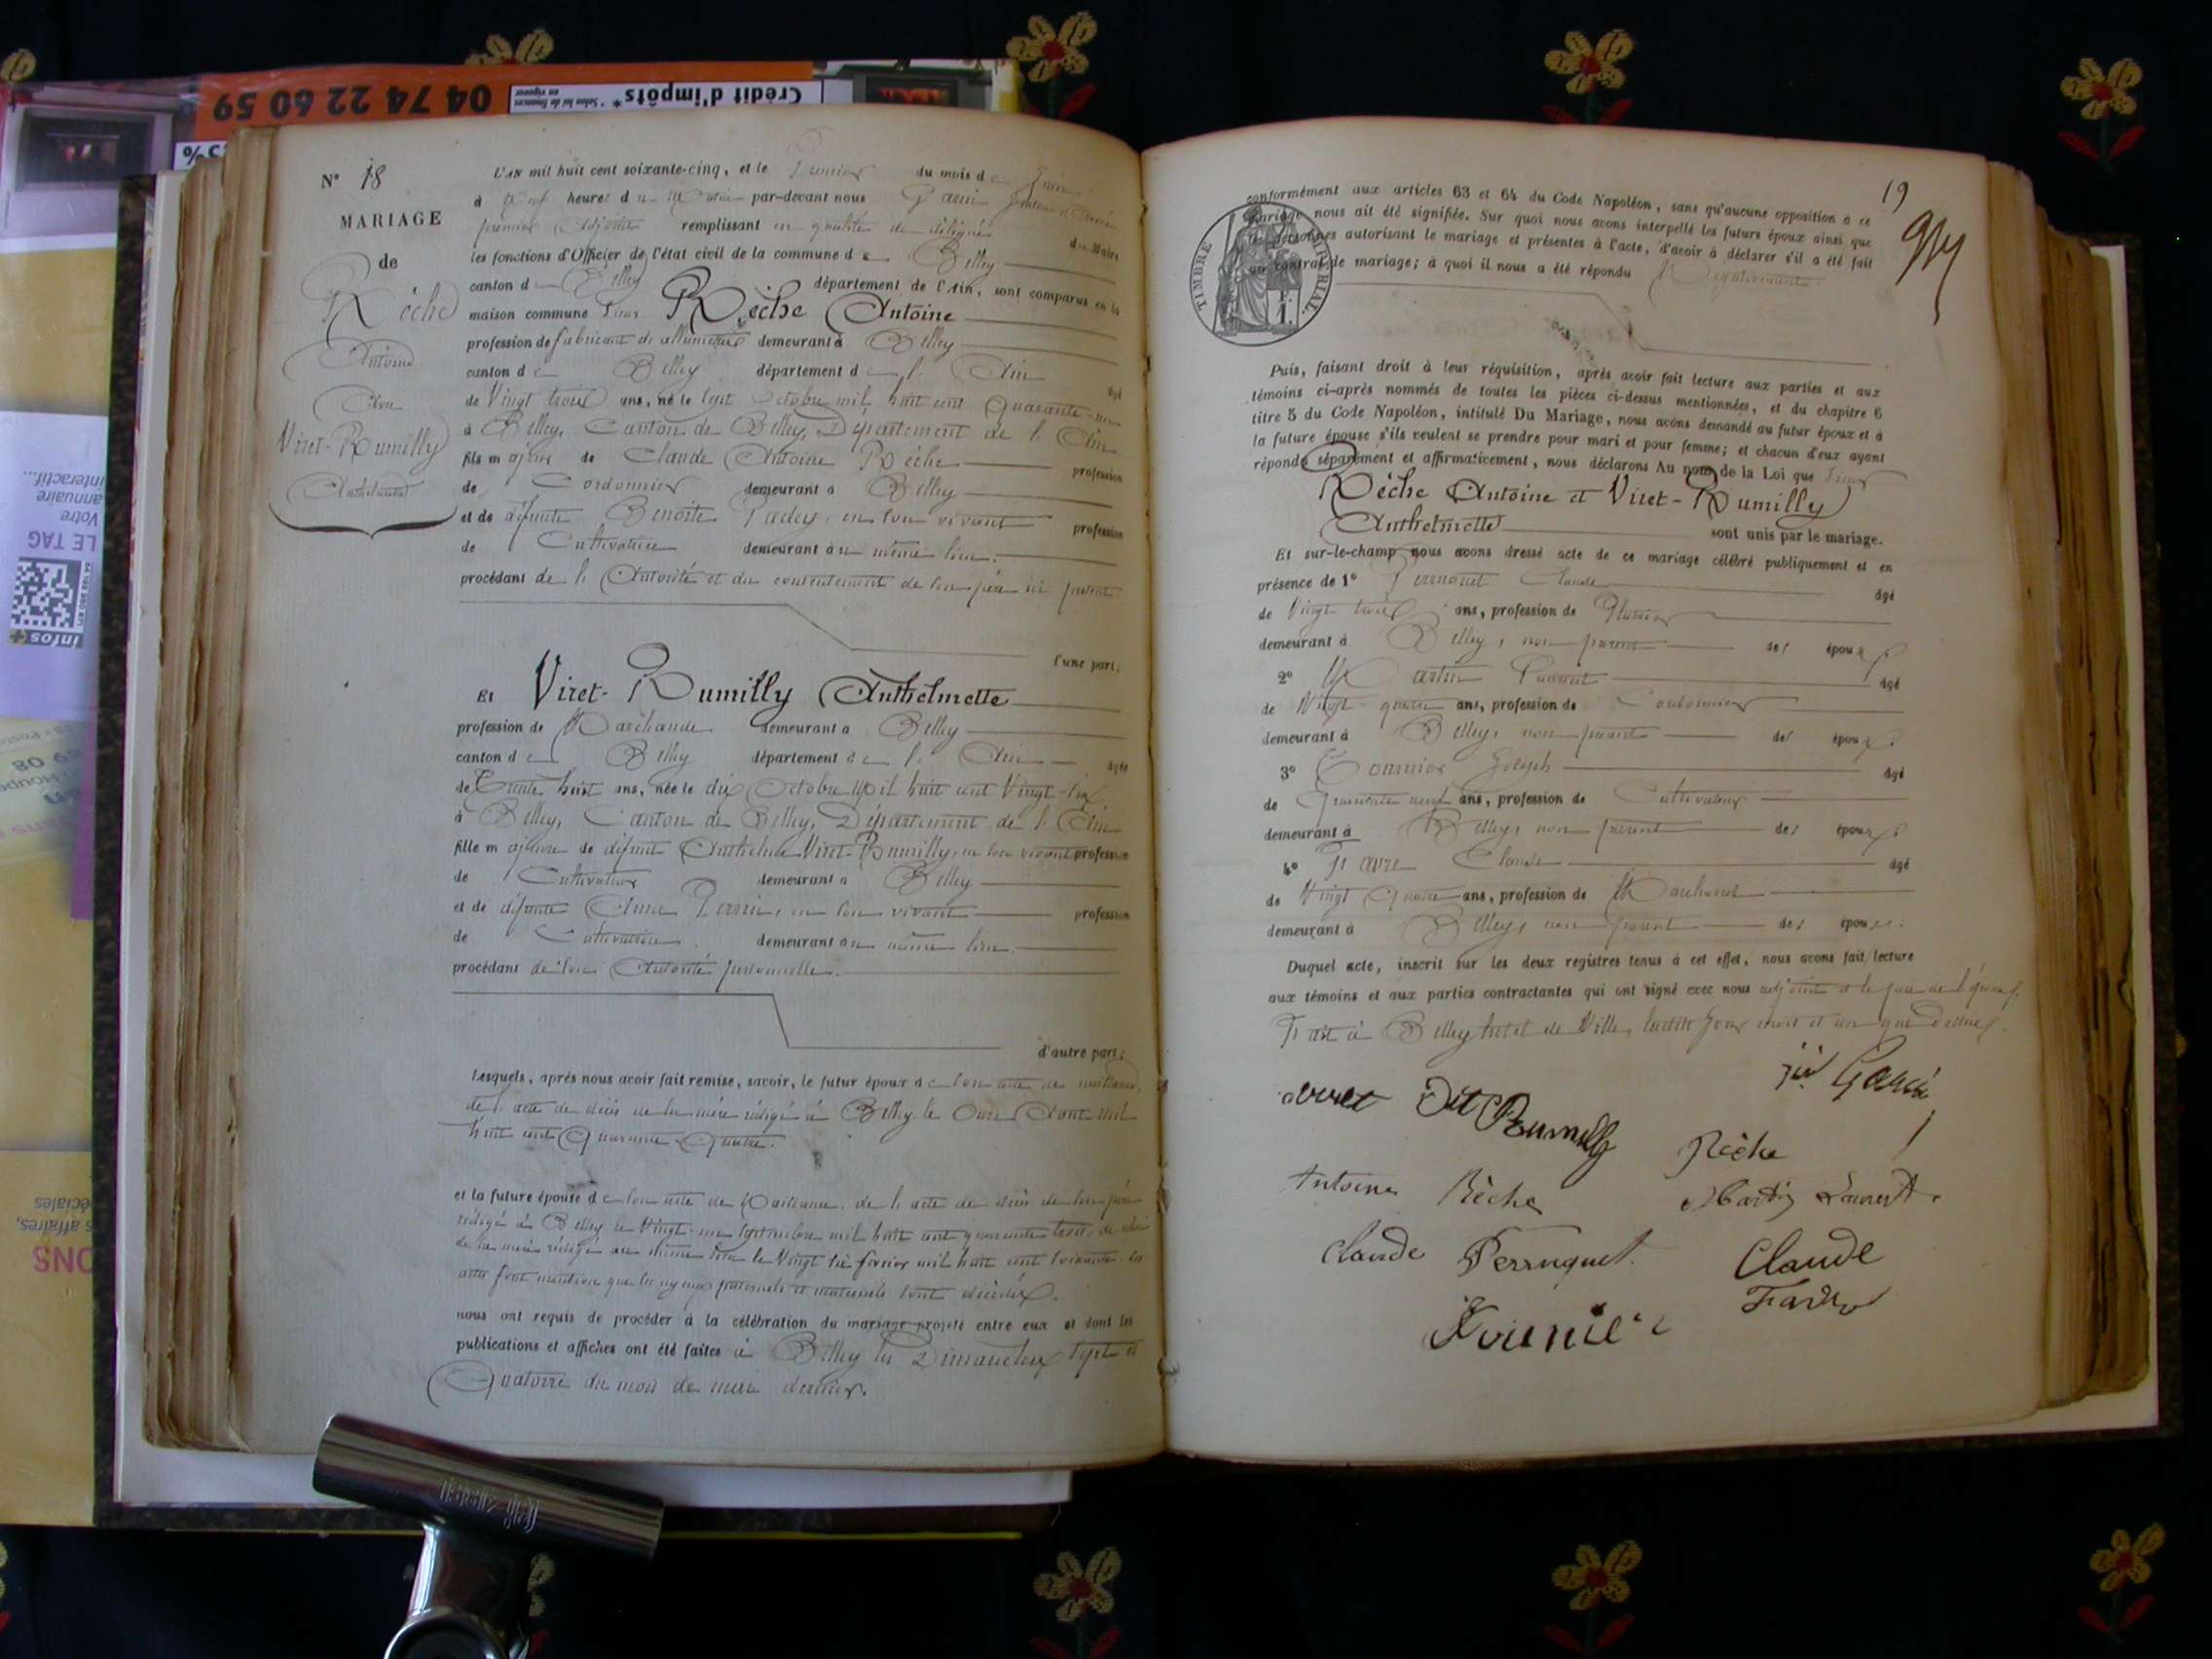 04 74 22 60 59
Crédit d'impôts*
* Selon loi de finances
en vigueur
annuaire
interactif...
Votre
LE TAG
infos+
N° 18
MARIAGE
de
Rèche
Antoine
Avec
Viret-Rumilly
Anthelmette
L'AN mil huit cent soixante-cinq, et le Premier du mois de Juin
à neuf heures du Matin par-devant nous
premier Adjoint remplissant en qualité de délégué du Maire
les fonctions d'Officier de l'état civil de la commune de Belley
canton de Belley département de l'Ain, sont comparus en la
maison commune Sieur Rèche Antoine
profession de fabricant de allumettes demeurant à Belley
canton de Belley département de l'Ain âgé
de Vingt trois ans, né le sept Octobre mil huit cent Quarante-un
à Belley, Canton de Belley, Département de l'Ain
fils majeur de Claude Antoine Rèche profession
de Cordonnier demeurant à Belley
et de défunte Benoite en son vivant profession
de Cultivatrice demeurant au même lieu.
procédant de l'Autorité et du consentement de son père ici présent.
l'une part;
Et Viret-Rumilly Anthelmette
profession de Marchande demeurant à Belley
canton de Belley département de l'Ain âgée
de Trente huit ans, née le dix Octobre Mil huit cent Vingt-six
à Belley, Canton de Belley, Département de l'Ain
fille majeure de défunt Anthelme Viret-Rumilly, en son vivant profession
de Cultivateur demeurant à Belley
et de défunte en son vivant profession
de Cultivatrice. demeurant au même lieu.
procédant de son Autorité personnelle.
d'autre part;
Lesquels, après nous avoir fait remise, savoir, le futur époux de son acte de naissance,
de l'acte de décès de sa mère rédigé à Belley le Onze Aout mil
huit cent Quarante-Quatre.
et la future épouse de son acte de Naissance, de l'acte de décès de son père
rédigé à Belley le Vingt-un Septembre mil huit cent quarante trois, de celui
de sa mère rédigé au même lieu le Vingt six février mil huit cent soixante. Les
actes font mention que les ayeux paternels et maternels sont décédés.
nous ont requis de procéder à la célébration du mariage projeté entre eux et dont les
publications et affiches ont été faites à Belley les Dimanches sept et
Quatorze du mois de mai dernier.
19
TIMBRE IMPERIAL
conformément aux articles 63 et 64 du Code Napoléon, sans qu'aucune opposition à ce
mariage nous ait été signifiée. Sur quoi nous avons interpellé les futurs époux ainsi que
les personnes autorisant le mariage et présentes à l'acte, d'avoir à déclarer s'il a été fait
un contrat de mariage; à quoi il nous a été répondu Négativement.
Puis, faisant droit à leur réquisition, après avoir fait lecture aux parties et aux
témoins ci-après nommés de toutes les pièces ci-dessus mentionnées, et du chapitre 6
titre 5 du Code Napoléon, intitulé Du Mariage, nous avons demandé au futur époux et à
la future épouse s'ils veulent se prendre pour mari et pour femme; et chacun d'eux ayant
répondu séparément et affirmativement, nous déclarons Au nom de la Loi que Sieur
Rèche Antoine et Viret-Rumilly
Anthelmette sont unis par le mariage.
Et sur-le-champ nous avons dressé acte de ce mariage célébré publiquement et en
présence de 1° Claude âgé
de Vingt trois ans, profession de
demeurant à Belley, non parent des époux.
2° Martin Laurent âgé
de Vingt-quatre ans, profession de Cordonnier
demeurant à Belley, non parent des époux.
3° Joseph âgé
de Quarante neuf ans, profession de Cultivateur
demeurant à Belley, non parent des époux.
4° Favre Claude âgé
de Vingt Quatre ans, profession de Marchand
demeurant à Belley, non parent des époux.
Duquel acte, inscrit sur les deux registres tenus à cet effet, nous avons fait lecture
aux témoins et aux parties contractantes qui ont signé avec nous adjoint et le père de l'époux.
Fait à Belley hotel de Ville, lesdits jour mois et an que dessus.
viret Dit Rumilly
Rèche
Antoine Rèche Martin Laurent
Claude Perruquet. Claude